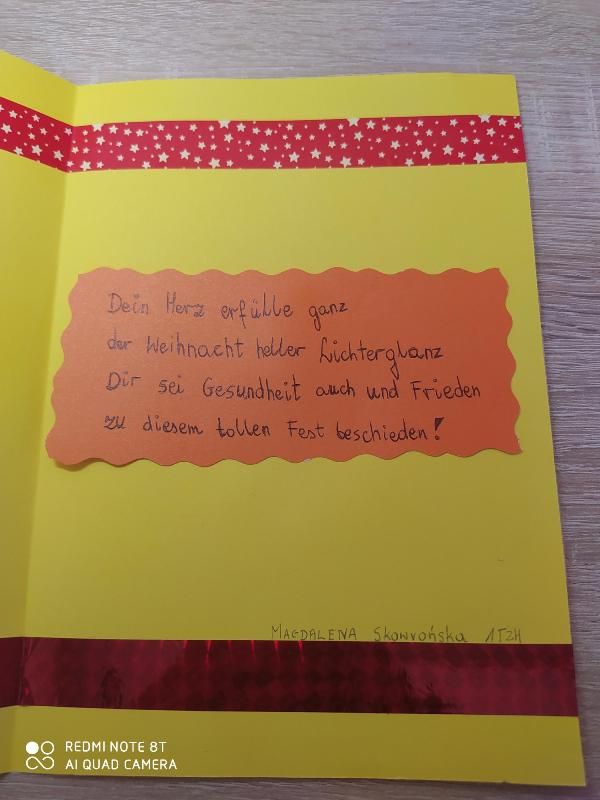 Dein Herz erfülle ganz
der Weihnacht heller Lichterglanz
Dir sei Gesundheit auch und Frieden
zu diesem tollen Fest beschieden!
MAGDALENA Skowrońska 1TZH
REDMI NOTE 8T
AI QUAD CAMERA